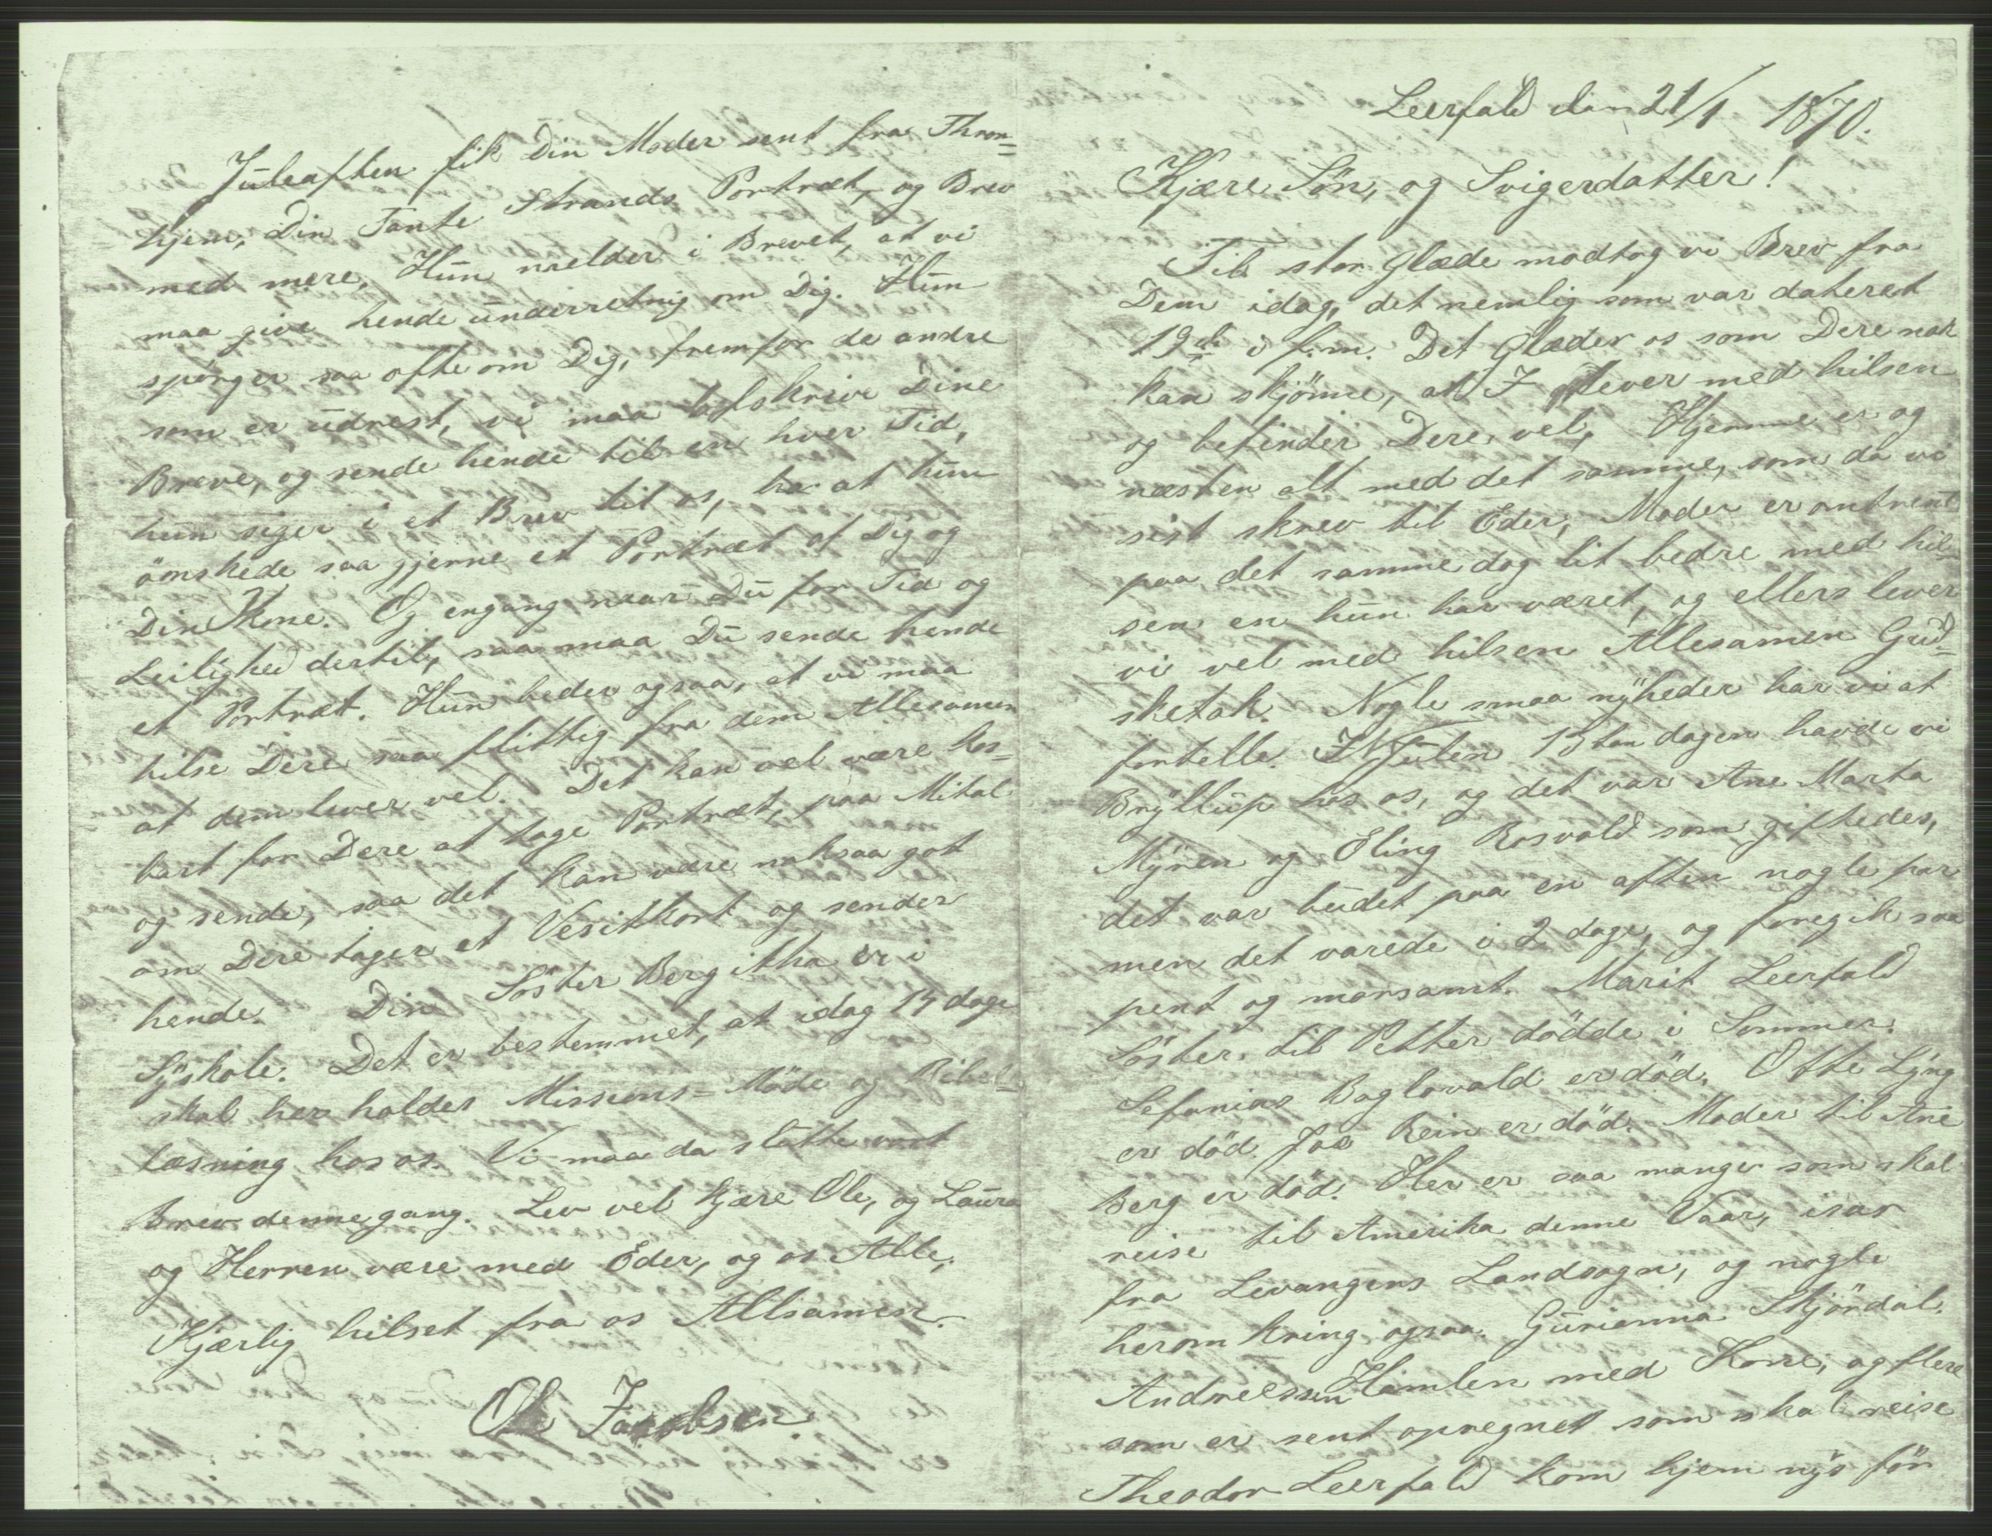 Leerfald den 21/1 1870.
Kjære Søn, og Svigerdatter!
Til stor Glæde modtog vi Brev fra
Dem idag, det nemlig som var dateret
19de i f.m. Det Glæder os som Dere nok
kan skjönne, at I lever med hilsen
og befinder Dere vel, Hjemme er og
næsten alt med det samme, som da vi
sist skrev til Eder, Moder er omtrent
paa det samme dog lit bedre med hil-
sen en hun har været, og ellers lever
vi vel med hilsen Allesamen Gud=
sketak. Nogle smaa nyheder har vi at
fortelle. I Julen 13ten dagen havde vi
Bryllup hos os, og det var Ane Marta
Myren og Eling Rosvold som giftedes,
det var budet paa en aften nogle par
men det varede i 2 dage, og foregik saa
pent og morsamt. Marit Leerfald
Söster til Petter dödde i Sommer.
Sefanias Baglovald er död. Otte Lyng
er död. Joe Rein er död. Moder til Ane
Berg er död. Her er saa mange som skal
reise til Amerika denne Vaar, især
fra Levangens Landsogn, og nogle
herom kring ogsaa. Gurianna Skjördal.
Andreessen Hamlen med Kone, og flere
som er sent opregnet som skal reise
Theodor Leerfald kom hjem nys för
Juleaften fik Din Moder sent fra Thron=
hjem, Din Tante Strands Portræt, og Brev
med mere, Hun melder i Brevet, at vi
maa give hende underretnig om Dig. Hun
spörger saa ofte om Dig, fremfor de andre
som er udrest, vi maa afskrive Dine
Breve, og sende hende til en hver Tid,
hun siger i et Brev til os, ha at hun
ömskede saa gjerne et Portræt af Dig og
Din Kone. Og engang naar Du for Tid og
Leilighed dertil, saa maa Du sende hende
et Portræt. Hun beder ogsaa, at vi maa
hilse Dere saa flittig fra dem Allesamen
at dem lever vel. Det kan vel være kos-
bart for Dere at tage Portræt, paa Mital
og sende, saa det kan være noksaa got
om Dere tager et Vesitkort og sender
hende. Din Söster Bergitha er i
Syskole. Det er bestemmet, at idag 14 dage
skal her holdes Missions=Möde og Bibel=
læsning hos os. Vi maa da slutte vort
Brev denne gang. Lev vel kjære Ole, og Laura
og Herren være med Eder, og os Alle,
Kjærlig hilset fra os Allsamen.
Ole Jacobsen.